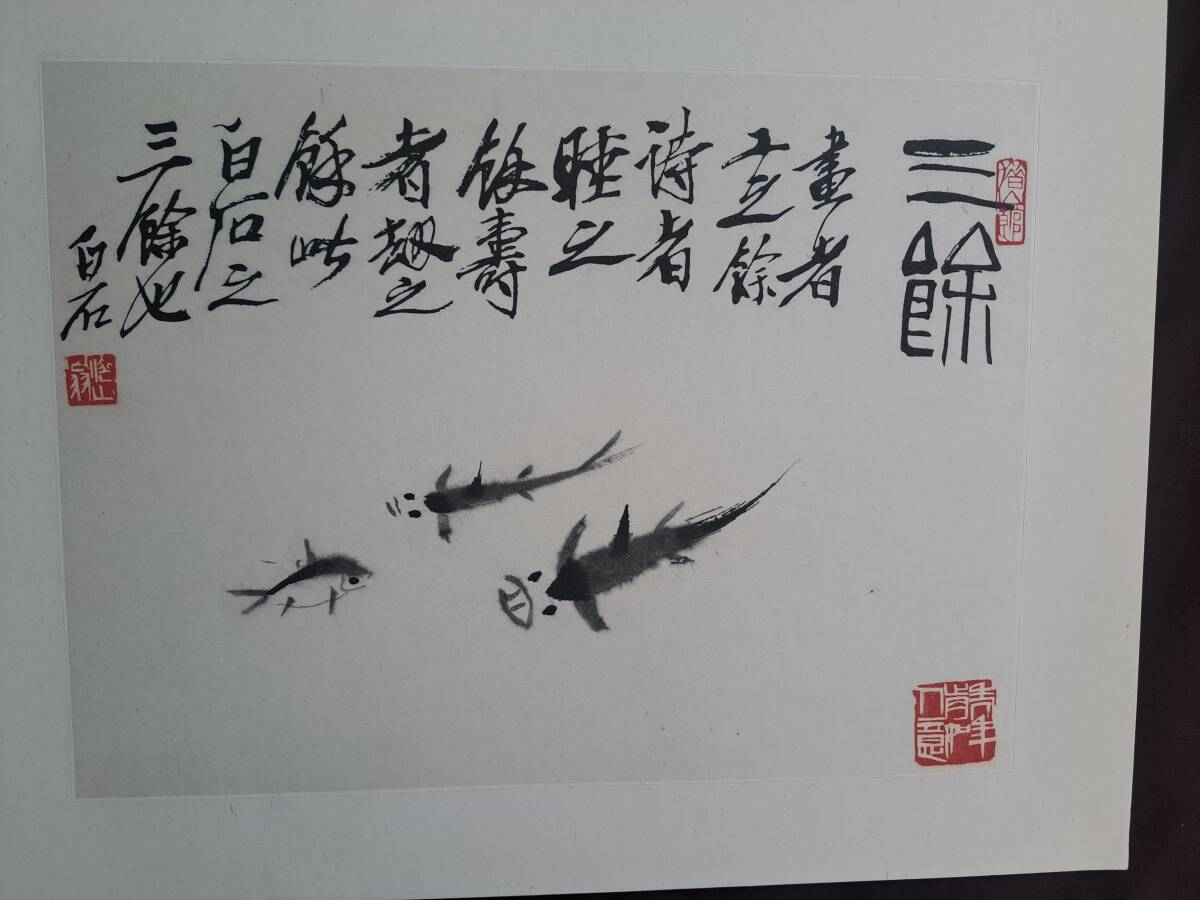 三餘
畫者
工之餘
詩者
睡之
餘壽
者刼之
餘此
白石之
三餘也
白石
借山翁